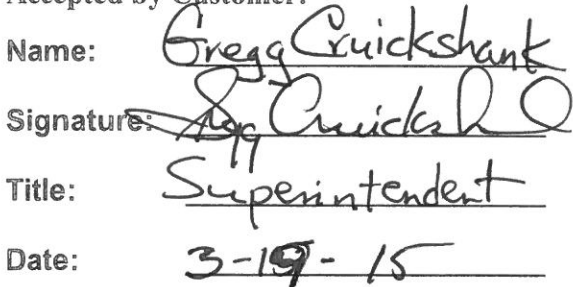 Accepted by Customer:
Name: Gregg Cruickshank
Signature: Gregg Cruickshank
Title: Superintendent
Date: 3-19-15